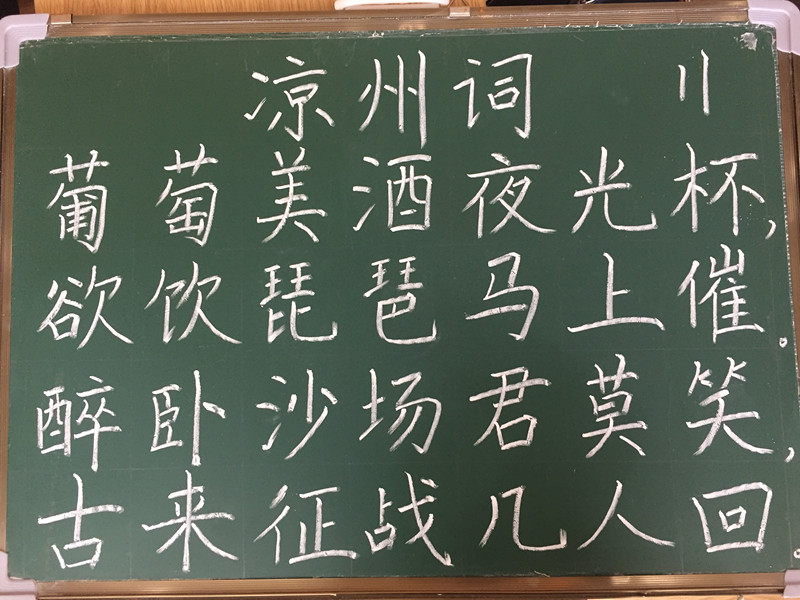 凉州词 〢
葡萄美酒夜光杯,
欲饮琵琶马上催。
醉卧沙场君莫笑,
古来征战几人回。